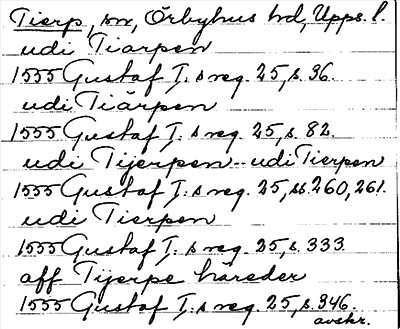 Tierp, sn, Örbyhus hd, Upps. l.
udi Tiarpen
1555 Gustaf I:s reg. 25, s. 36.
udi Tiärpen
1555 Gustaf I:s reg. 25, s. 82.
udi Tijerpen – udi Tierpen
1555 Gustaf I:s reg. 25, ss. 260, 261.
udi Tierpen
1555 Gustaf I:s reg. 25, s. 333.
aff Tyerpe häreder
1555 Gustaf I:s reg. 25, s. 346.
avskr.